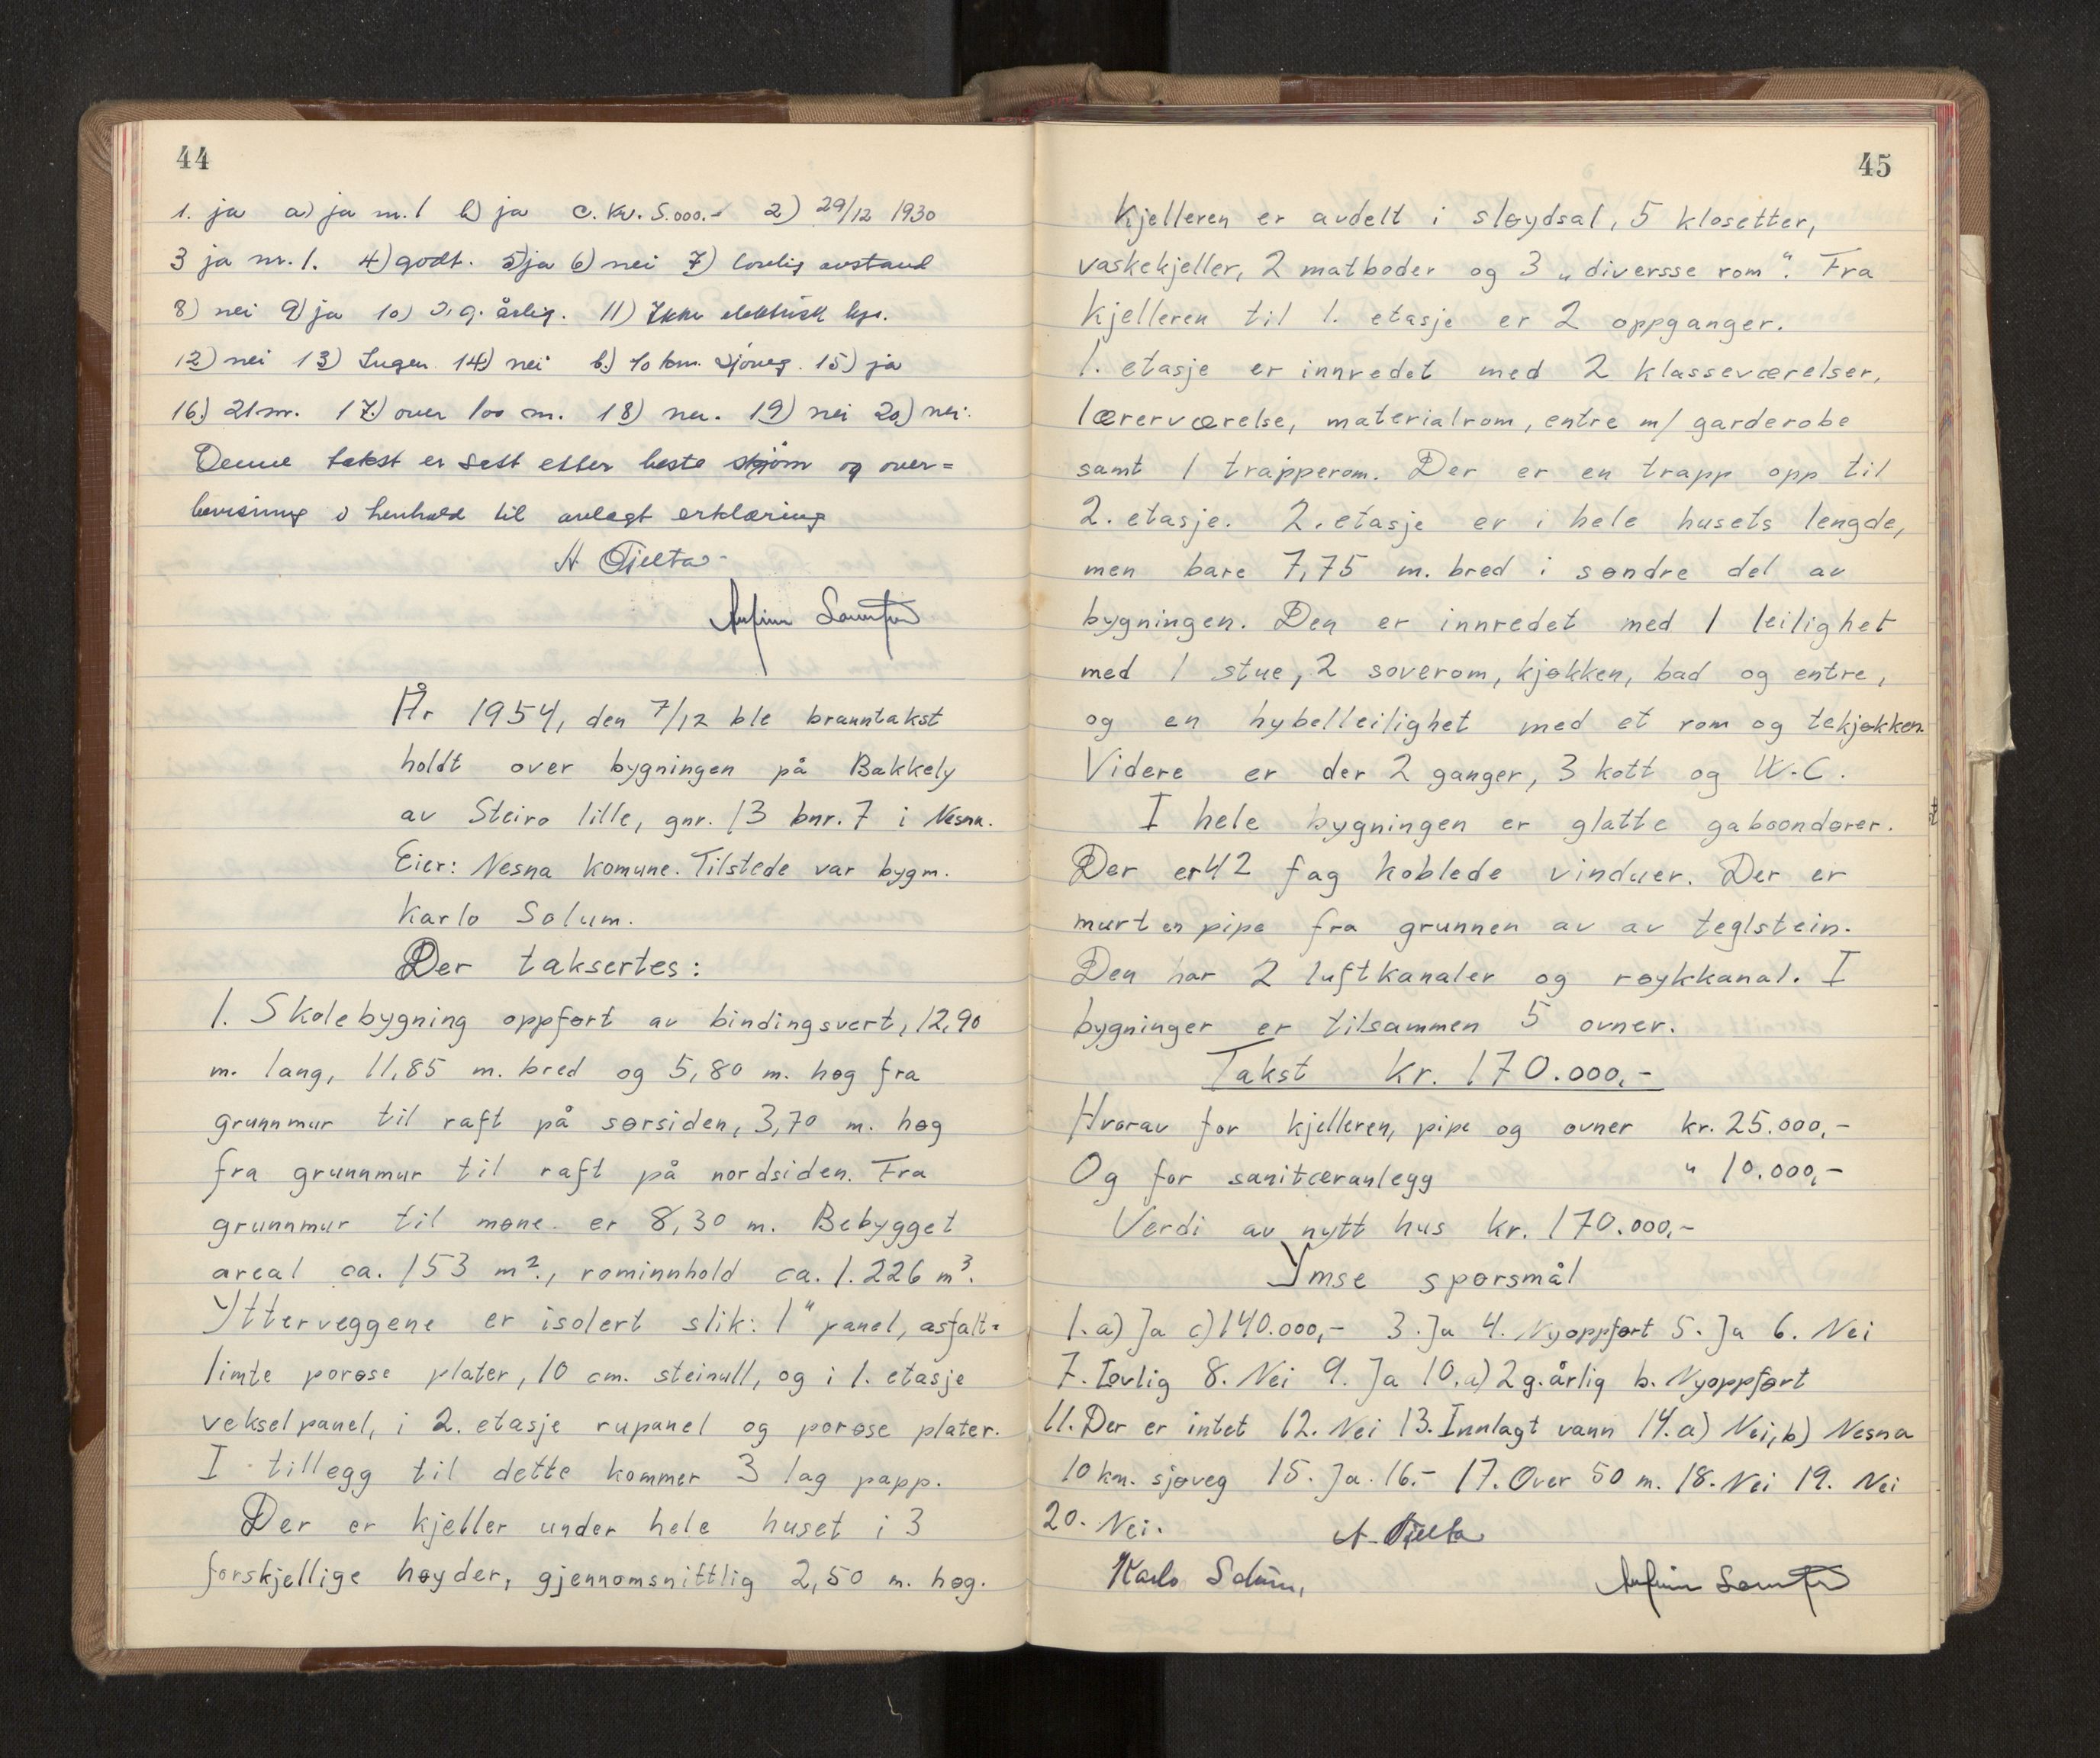 44
1. ja a) ja nr. 1 b) ja c. Kr. 5.000.- 2) 29/12 1930
3 ja nr. 1. 4) godt. 5) ja 6) nei 7) lovlig avstand
8) nei 9) ja 10) 2. g. årlig. 11) Ikke elektrisk lys.
12) nei 13) Ingen 14) nei b.) 10 km. sjøveg. 15) ja
16.) 21 m. 17.) over 100 m. 18) nei. 19) nei 20) nei.
Denne takst er sett etter beste skjønn og over=
bevisning i henhold til avlagt erklæring
A Tjelta
År 1954, den 7/12 ble branntakst
holdt over bygningen på Bakkely
av Steiro lille, gnr. 13 bnr. 7 i Nesna.
Eier: Nesna komune. Tilstede var bygm.
Karlo Solum.
Der taksertes:
1. Skolebygning oppført av bindingsvert, 12,90
m. lang, 11,85 m. bred og 5,80 m. høg fra
grunnmur til raft på sørsiden, 3,70 m. høg
fra grunnmur til raft på nordsiden. Fra
grunnmur til møne er 8,30 m. Bebygget
areal ca. 153 m²., rominnhold ca. 1.226 m³.
Ytterveggene er isolert slik: 1" panel, asfalt=
limte porøse plater, 10 cm. steinull, og i 1. etasje
vekselpanel, i 2. etasje rupanel og porøse plater.
I tillegg til dette kommer 3 lag papp.
Der er kjeller under hele huset i 3
forskjellige høyder, gjennomsnittlig 2,50 m. høg.
45
Kjelleren er avdelt i sløydsal, 5 klosetter,
vaskekjeller, 2 matboder og 3 „diversse rom". Fra
kjelleren til 1. etasje er 2 oppganger.
1. etasje er innredet med 2 klasseværelser,
lærerværelse, materialrom, entre m/ garderobe
samt 1 trapperom. Der er en trapp opp til
2. etasje. 2. etasje er i hele husets lengde,
men bare 7,75 m. bred i søndre del av
bygningen. Den er innredet med 1 leilighet
med 1 stue, 2 soverom, kjøkken, bad og entre,
og en hybelleilighet med et rom og tekjøkken
Videre er der 2 ganger, 3 kott og W.C.
I hele bygningen er glatte gaboondører.
Der er 42 fag koblede vinduer. Der er
murt en pipe fra grunnen av av teglstein.
Den har 2 luftkanaler og røykkanal. I
bygninger er tilsammen 5 ovner.
Takst kr. 170.000,-
Hvorav for kjelleren, pipe og ovner kr. 25.000,-
Og for sanitæranlegg " 10.000,-
Verdi av nytt hus kr. 170.000,-
Ymse spørsmål
1. a) Ja c) 140.000,- 3. Ja 4. Nyoppført 5. Ja 6. Nei
7. Lovlig 8. Nei 9. Ja 10. a) 2 g. årlig b. Nyoppført
11. Der er intet 12. Nei 13. Innlagt vann 14. a) Nei, b) Nesna
10 km. sjøveg 15. Ja. 16.- 17. Over 50 m. 18. Nei 19. Nei
20. Nei.
A. Tjelta
Karlo Solum,